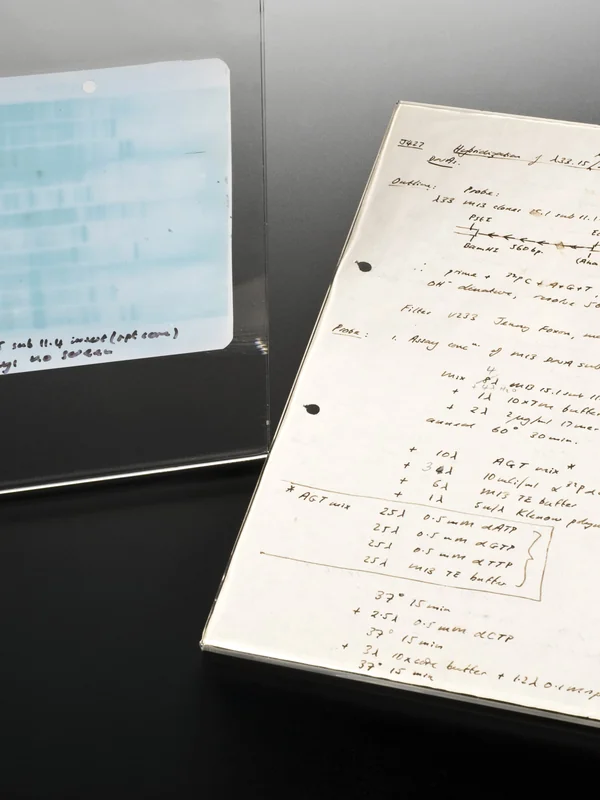 T sub 11.4 insert (opt cons)
no screen
J427 Hybridization of λ33.15/
DNAs.
Outline: Probe:
λ33 M13 clones 15.1 sub 11.1
PstI
BamHI 560bp.
∴ prime + ³²P C + A+G+T
OH⁻ denature, resolve
Filter V233 Jenny Foxon,
Probe: 1. Assay concⁿ of M13 DNA sub
4
mix M13 15.1 sub 11.
+ 1λ 10xTM buffer
+ 2λ 2μg/ml 17mer
anneal 60° 30 min.
+ 10λ AGT mix *
+ 3λ 10mCi/ml α³²P
+ 6λ M13 TE buffer
+ 1λ 5u/λ Klenow
* AGT mix 25λ 0.5 mM dATP
25λ 0.5 mM dGTP
25λ 0.5 mM dTTP
25λ M13 TE buffer
37° 15 min
+ 2.5λ 0.5 mM dCTP
37° 15 min
+ 3λ 10x core buffer + 1.2λ 0.1 M
37° 15 min